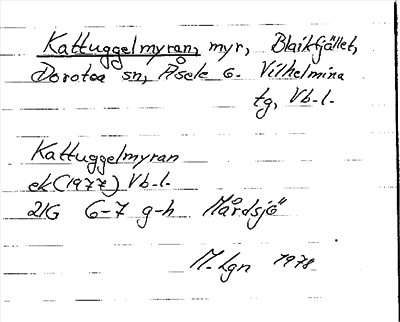 Kattuggelmyran, myr, Blaikfjället,
Dorotea sn, Åsele o. Vilhelmina
tg, Vb-l.
Kattuggelmyran
ek (1977) Vb-l.
21G 6-7 g-h Mårdsjö
M. Lgn 1978